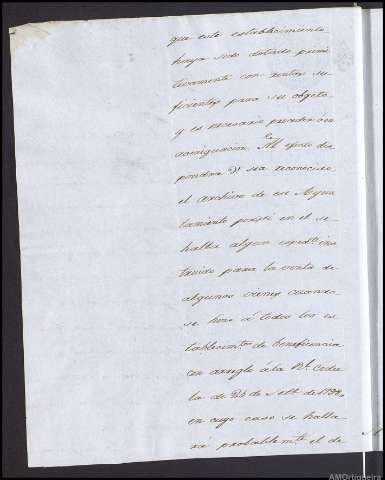 que este establecimiento
haya sido dotado primi
tivamente con rentas su
ficientes para su objeto
y es necesario proceder à su
averiguacion. Al efecto dis
pondra V. sea reconocido
el archivo de ese Ayun
tamiento por si en el se
halla algun exped.te ins
truido para la venta de
algunos vienes cuando
se hizo à todos los es
tablecim.tos de beneficencia
con arreglo á la R.l Cedu
la de 26 de Set.e de 1798,
en cuyo caso se halla
rá probablem.te el de
AMOrtigueira